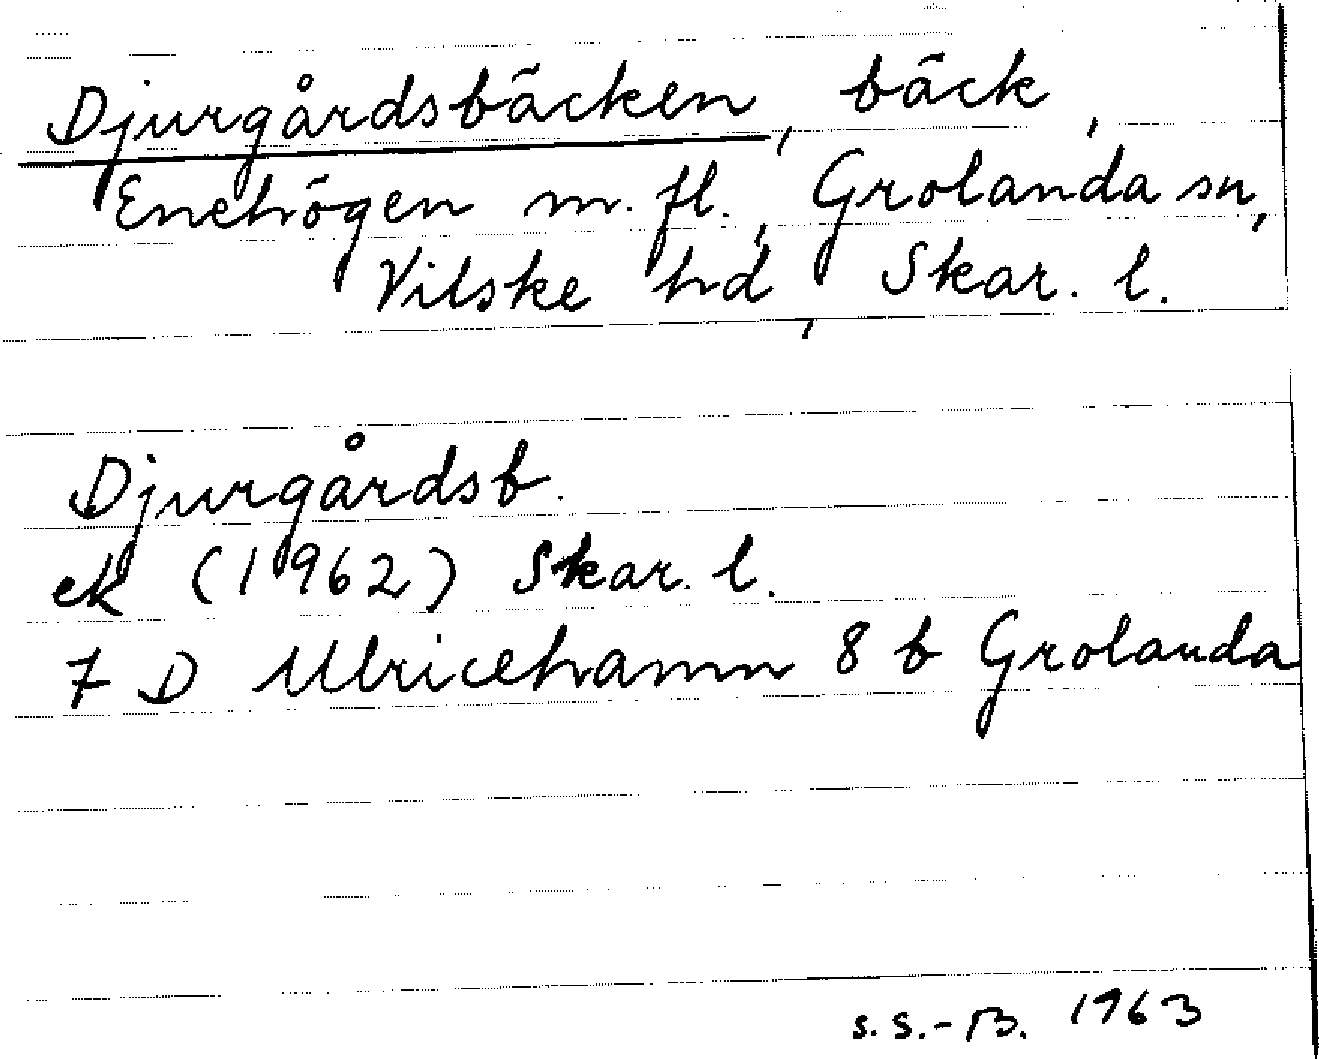 Djurgårdsbäcken, bäck,
Enehögen m. fl., Grolanda sn,
Vilske hd, Skar. l.
Djurgårdsb.
ek (1962) Skar. l.
7 D Ulricehamn 8 b Grolanda
S. S.-B. 1963